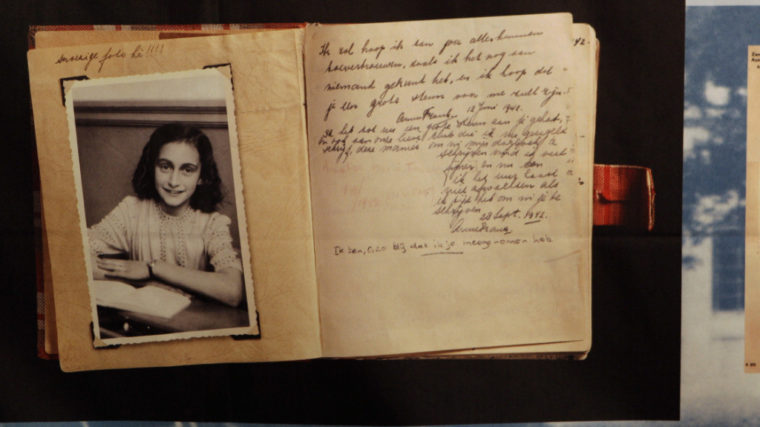 snoezige foto hè!!!!
Ik zal hoop ik aan jou alles kunnen
toevertrouwen, zoals ik het nog aan
niemand gekund heb, en ik hoop dat
je een grote steun voor me zult zijn.
Anne Frank. 12 Juni 1942.
Ik heb tot nu een grote steun aan je gehad,
en ook aan onze lieve club die ik nu geregeld
schrijf, deze manier om in mijn dagboek
te schrijven vind ik veel
fijner en nu kan
ik het uur haast
niet afwachten als
ik tijd heb om in je te
schrijven.
28 Sept. 1942.
Anne Frank.
Ik ben, o, zo blij dat ik je meegenomen heb
42.